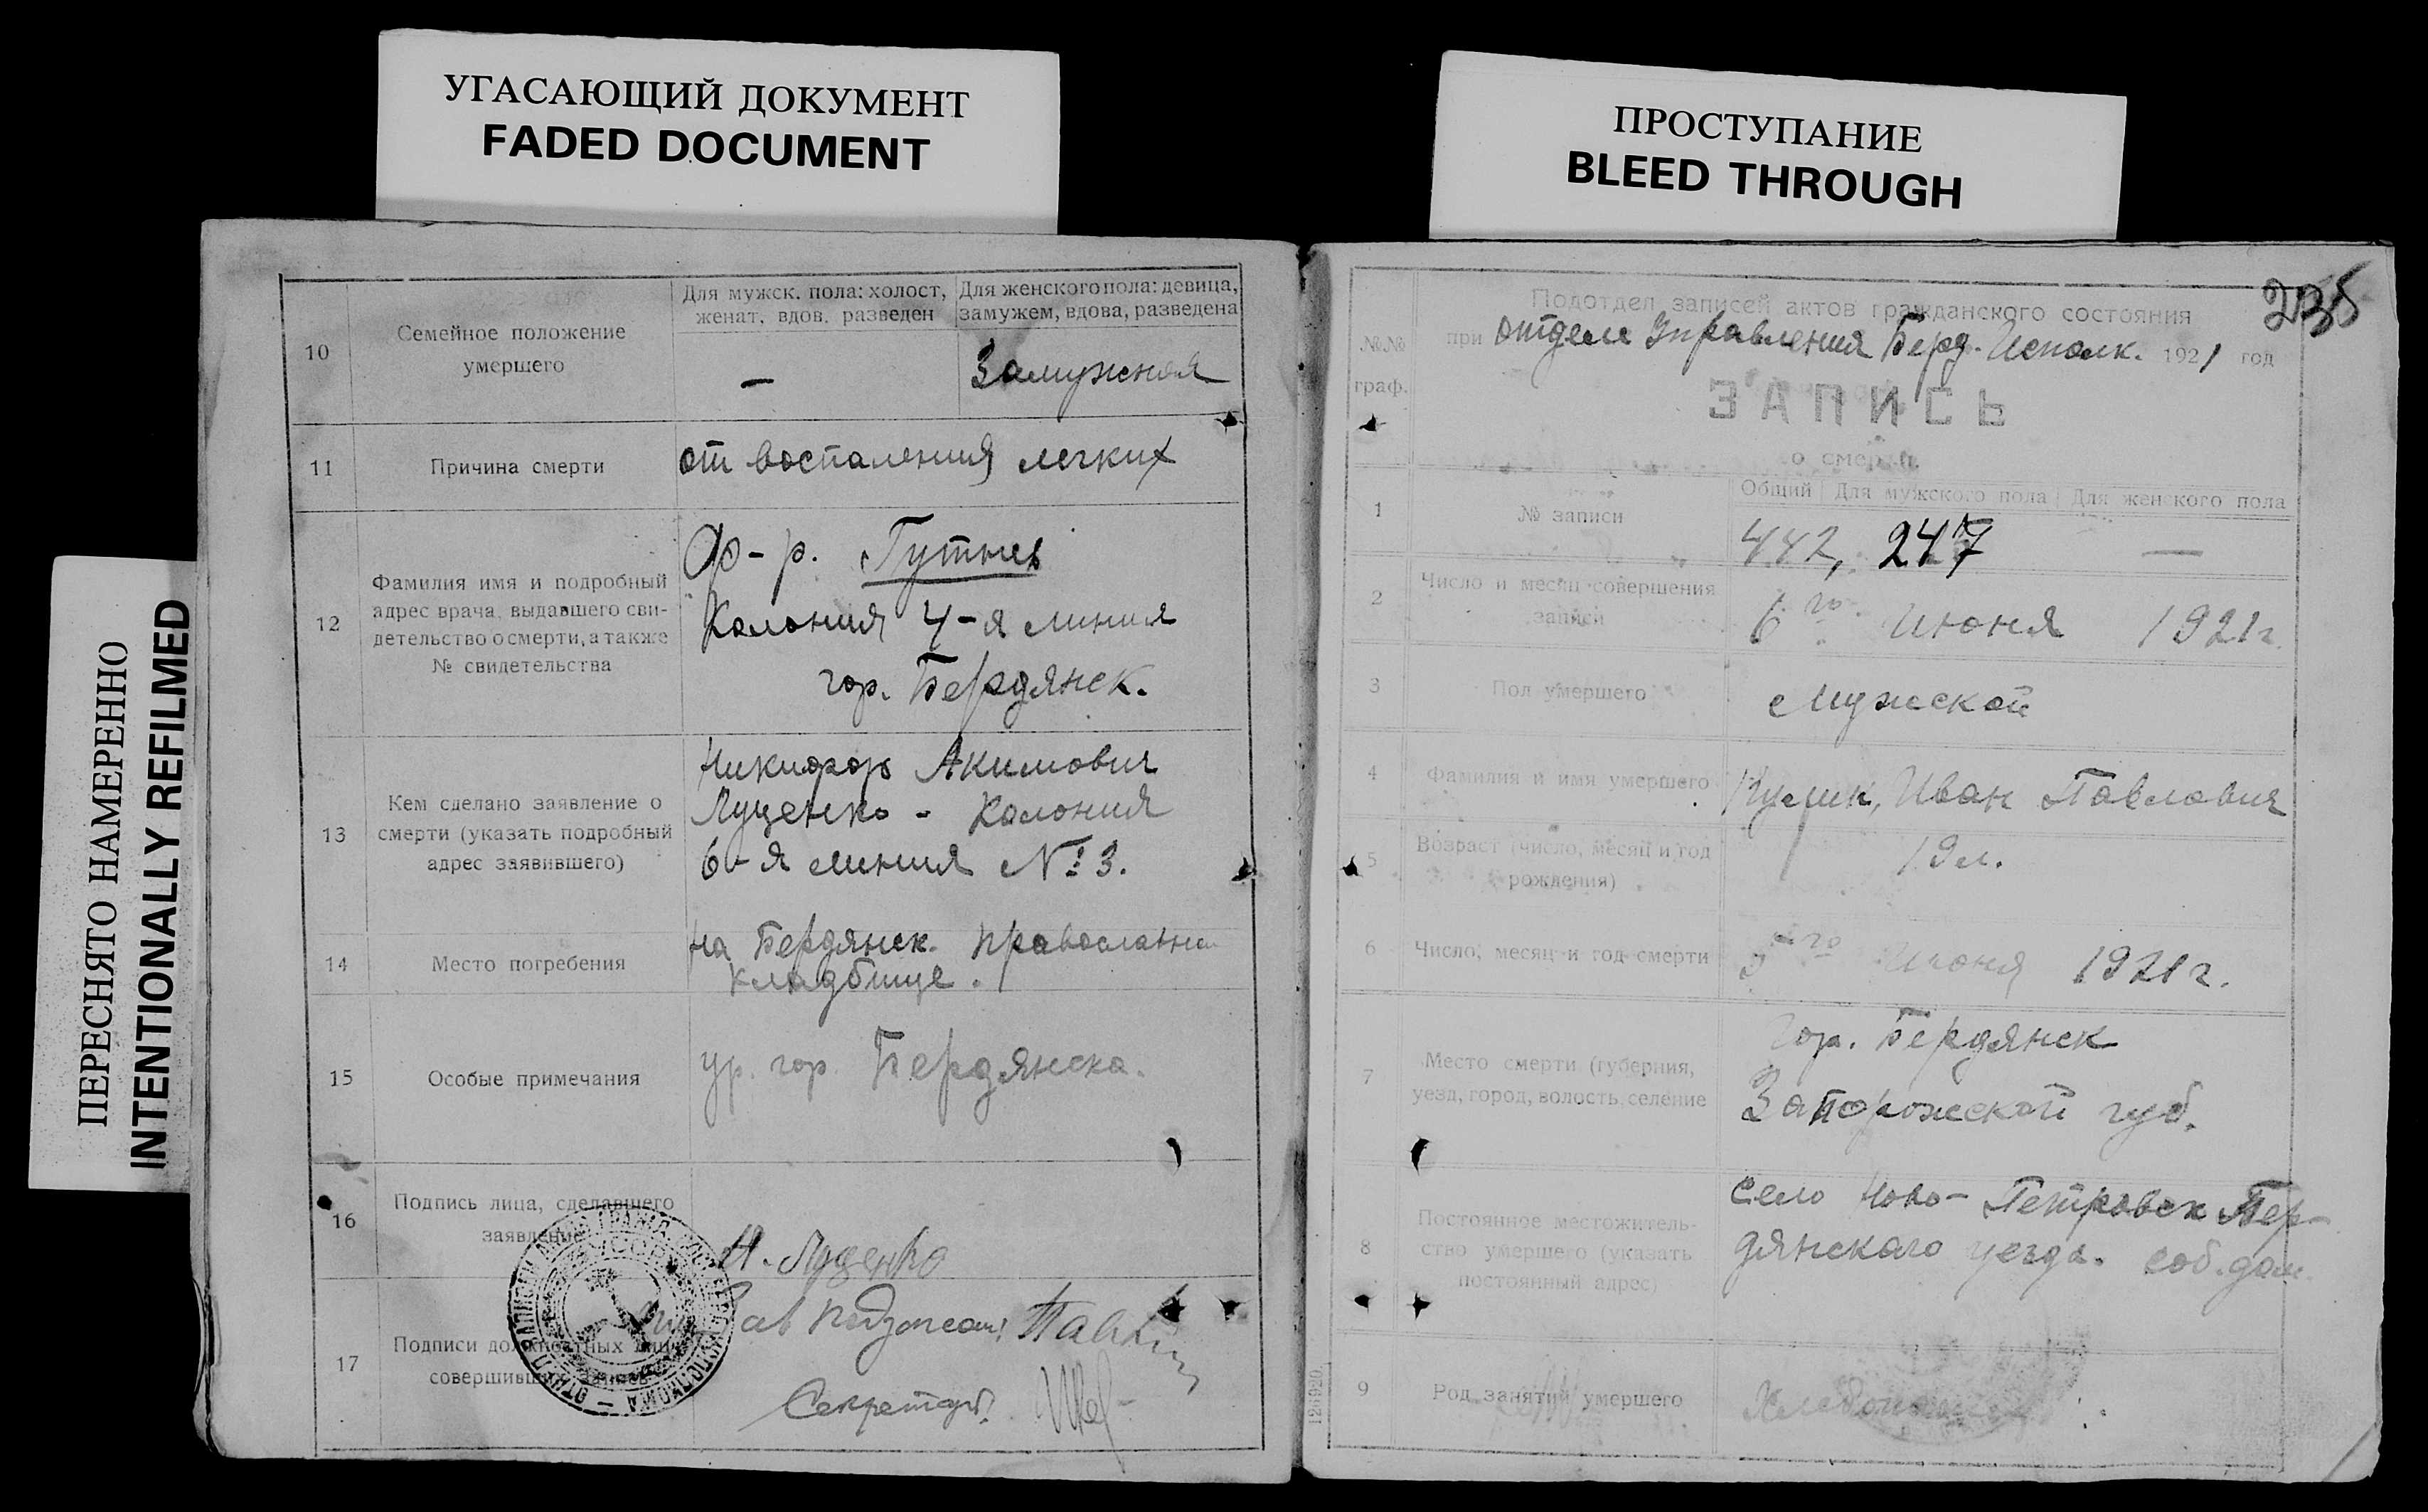 УГАСАЮЩИЙ ДОКУМЕНТ
FADED DOCUMENT
ПРОСТУПАНИЕ
BLEED THROUGH
ПЕРЕСНЯТО НАМЕРЕННО
INTENTIONALLY REFILMED
10
Семейное положение
умершего
Для мужск. пола: холост,
женат, вдов, разведен
Для женского пола: девица,
замужем, вдова, разведена
—
Замужняя
11
Причина смерти
от воспаления легких
12
Фамилия имя и подробный
адрес врача, выдавшего сви-
детельство о смерти, а также
№ свидетельства
Колония 4-я линия
гор. Бердянск.
13
Кем сделано заявление о
смерти (указать подробный
адрес заявившего)
Никифор Акимович
Луценко - Колония
6-я линия № 3.
14
Место погребения
на Бердянск. православн
кладбище.
15
Особые примечания
ур. гор. Бердянска.
16
Подпись лица, сделавшего
заявление
Н. Луценко
17
Подписи должностных лиц
совершивших запись
Секретарь
235
№№
граф.
Подотдел записей актов гражданского состояния
при Отделе Управления Берд. Исполк. 1921 год
ЗАПИСЬ
о смерти.
1
№ записи
Общий
Для мужского пола
Для женского пола
442, 247 —
2
Число и месяц совершения
записи
6го Июня 1921г.
3
Пол умершего
Мужской
4
Фамилия и имя умершего
Кулик, Иван Павлович
5
Возраст (число, месяц и год
рождения)
19л.
6
Число, месяц и год смерти
5го Июня 1921г.
7
Место смерти (губерния,
уезд, город, волость, селение
гор. Бердянск
Запорожской губ.
8
Постоянное местожитель-
ство умершего (указать
постоянный адрес)
Село Ново-Петровск Бер-
дянскаго уезда. соб. дом.
9
Род занятий умершего
126920